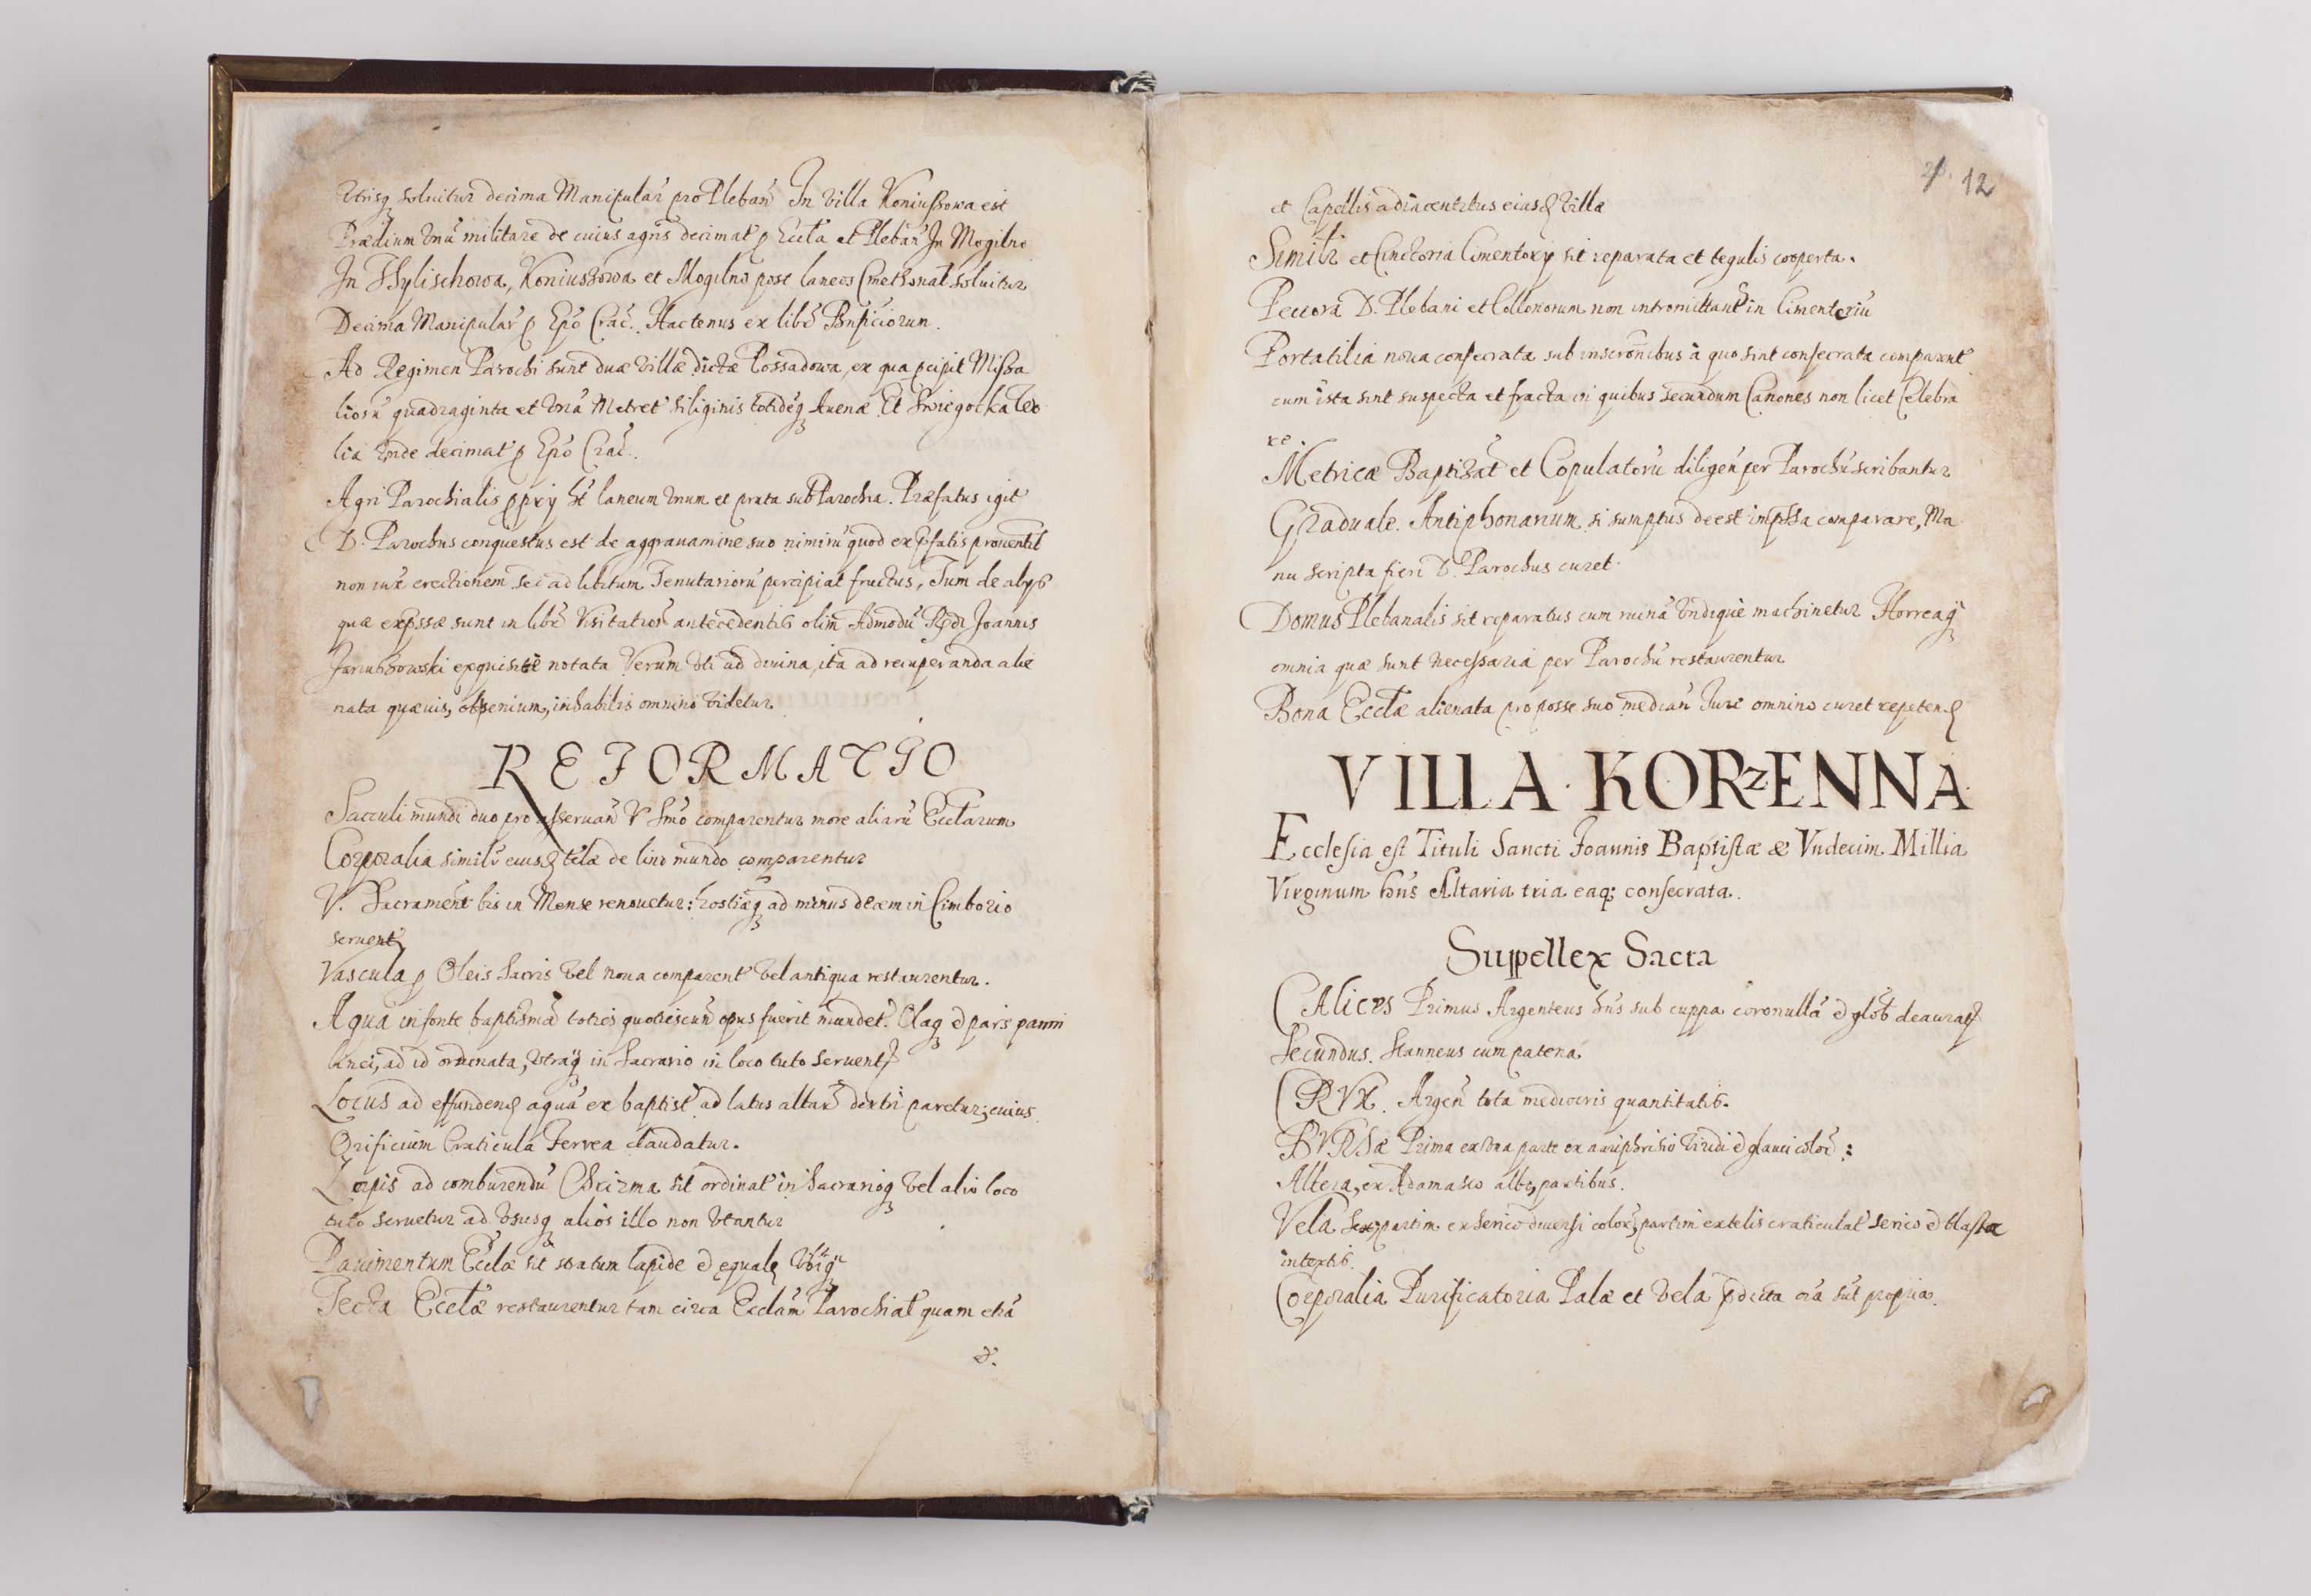 Utrisq soluitur decima Manipular pro Pleban In villa Koniussowa est
Prædium unu militare de cuius agris decimat p Eccla et Pleban In Mogilno
In Wylischowa, Koniussowa et Mogilno post laneos Cmethonal soluitur
Decima Manipular p Epo Crac. Hactenus ex libr Bnficiorum.
Ad Regimen Parochi sunt duæ villæ dictæ Possadowa, ex qua pcipit Missa
lioru quadraginta et una Metret siliginis totideq Auenæ. Et Swiegocka Wo
lia unde decimat p Epo Crac.
Agri Parochialis pprij st laneum unum et prata sub Parochia. Præfatus igit
D. Parochus conquestus est de aggrauamine suo nimiru quod ex pfatis prouentib
non iux erectionem sed ad libitum Tenutarioru percipiat fructus, Tum de alijs
quæ expssæ sunt in libr Visitatios antecedentis olim Admodu Rdi Joannis
Januszowski exquisite notata Verum uti ad diuina, ita ad recuperanda alie
nata quæuis, ob senium, inhabilis omnino videtur.
REFORMATIO
Sacculi mundi duo pro asseruan V Smo comparentur more aliaru Ecclarum
Corporalia similr eiusd telæ de lino mundo comparentur
V. Sacrament bis in Mense renouetur: hostiæq ad minus decem in Cimborio
seruent
Vascula p Oleis Sacris vel noua comparent vel antiqua restaurentur.
Aqua in fonte baptismal toties quotiescun opus fuerit mundet. Olaq & pars panni
linei, ad id ordinata, utraq in Sacrario in loco tuto seruent
Locus ad effundend aqua ex baptist ad latus altar dextri paretur, cuius
Orificium Craticula Ferrea claudatur.
Lapis ad comburendu Chrizma sit ordinat in Sacrarioq vel alio loco
tuto seruetur ad ususq alios illo non utantur
Pauimentum Eccla sit stratum lapide & equale ubiq
Tecta Ecclæ restaurentur tam circa Ecclam Parochial quam etia
&.
12
et Capellis adiacentibus eiusd villæ
Similr et Cinctoria Cimentorij sit reparata et tegulis cooperta.
Pecora D. Plebani et Collonorum non intromittant in Cimenteriu
Portatilia noua consecrata sub inscronibus a quo sint consecrata comparent
cum ista sint suspecta et fracta in quibus secundum Canones non licet Celebra
re.
Metricæ Baptizat et Copulatoru diligen per Parochu scribantur
Graduale. Antiphonarium si sumptus deest impssa comparare, Ma
nu scripta fieri D. Parochus curet.
Domus Plebanalis sit reparatus cum ruina undique machinetur Horreaq
omnia quæ sunt necessaria per Parochu restaurentur
Bona Ecclæ alienata pro posse suo median Jure omnino curet repetend
VILLA KORzENNA
Ecclesia est Tituli Sancti Joannis Baptistæ & Vndecim Millia
Virginum hns Altaria tria eaq; consecrata.
Supellex Sacra
CAlices Primus Argenteus hns sub cuppa coronulla & glob deaurat
Secundus. Stanneus cum patena.
CRVX. Argen tota mediocris quantitatis.
BVRSæ Prima ex una parte ex auriphrisio viridi & glauci color:
Altera, ex Adamasco albo, partibus.
Vela Sex partim ex Serico diuersi color, partim ex telis craticulat serico & blasta
intextis.
Corporalia Purificatoria Palæ et vela pdicta oia sut propria.